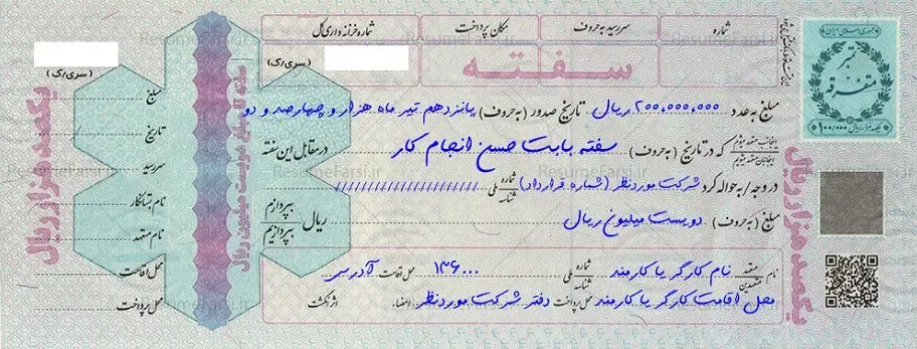 شماره
سررسید به حروف
مکان پرداخت
شماره خزانه داری کل
سفته
جمهوری اسلامی ایران
تمبر
متفرقه
یکصد هزار ریال ۱۰۰/۰۰۰
(سری/ک)
(سری/ک)
مبلغ به عدد ۲۰۰,۰۰۰,۰۰۰ ریال تاریخ صدور (به حروف) پانزدهم تیر ماه هزار و چهارصد و دو
اینجانب متعهد میشوم
اینجانبان متعهد میشویم
که در تاریخ (به حروف) سفته بابت حسن انجام کار در مقابل این سفته
در وجه/به حواله کرد شرکت مورد نظر (شماره قرارداد) شماره ملی شناسه ////////////////////////
بپردازم
بپردازیم
مبلغ (به حروف) دویست میلیون ریال ریال
نام متعهد متعهدین نام کارگر یا کارمند شماره ملی شناسه ۱۳۶۰۰۰ محل اقامت آدرس
محل اقامت کارگر یا کارمند محل پرداخت دفتر شرکت مورد نظر امضاء، اثر انگشت
سفته تا مبلغ دویست میلیون ریال
مبلغ
تاریخ
سررسید
نام بستانکار
نام متعهد
محل اقامت
محل پرداخت
یکصد هزار ریال
یکصد هزار ریال
ResumeFarsi.ir